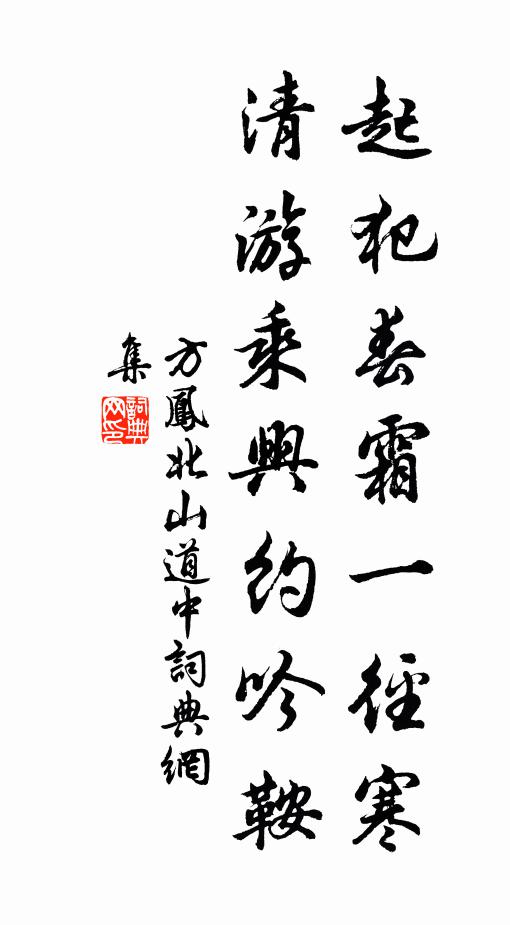 起犯春霜一徑寒
清游乘興約吟鞍
方鳳北山道中詞典網
集
詞典網印